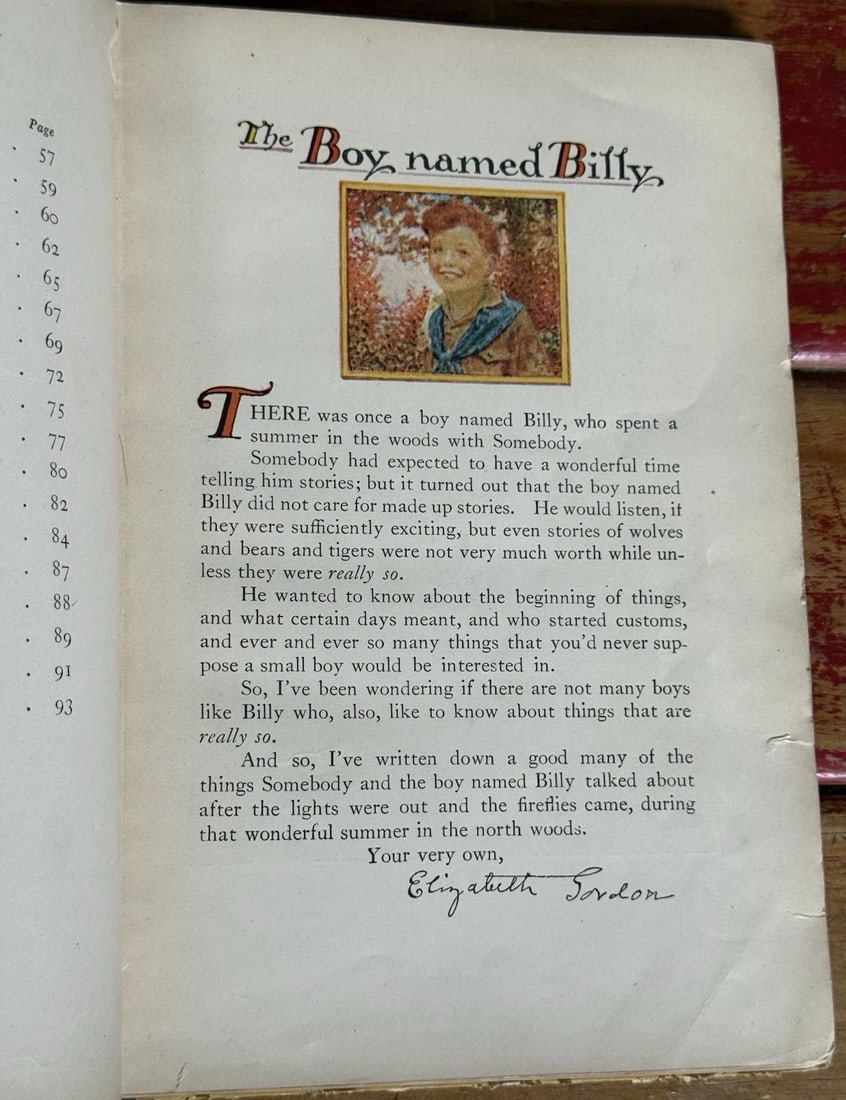 Page
57
59
60
62
65
67
69
72
75
77
80
82
84
87
88
89
91
93
The Boy named Billy
THERE was once a boy named Billy, who spent a
summer in the woods with Somebody.
Somebody had expected to have a wonderful time
telling him stories; but it turned out that the boy named
Billy did not care for made up stories. He would listen, if
they were sufficiently exciting, but even stories of wolves
and bears and tigers were not very much worth while un-
less they were really so.
He wanted to know about the beginning of things,
and what certain days meant, and who started customs,
and ever and ever so many things that you'd never sup-
pose a small boy would be interested in.
So, I've been wondering if there are not many boys
like Billy who, also, like to know about things that are
really so.
And so, I've written down a good many of the
things Somebody and the boy named Billy talked about
after the lights were out and the fireflies came, during
that wonderful summer in the north woods.
Your very own,
Elizabeth Gordon